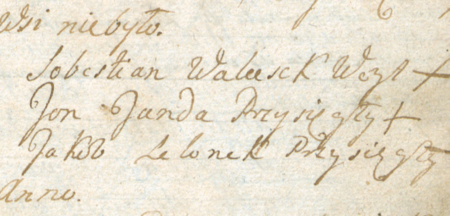 Wsi niebyło.
Sobestian Walesck Woyt +
Jon Janda Przysięgły +
Jakob Lelonek Przysięgły
Anno.